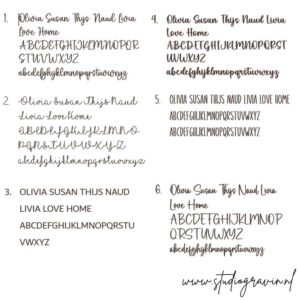 1. Olivia Susan Thijs Naud Livia
Love Home
ABCDEFGHIJKLMNOPQR
STUVWXYZ
abcdefghijklmnopqrstuvwxyz
2. Olivia Susan Thijs Naud
Livia Love Home
ABCDEFGHIJKLMNO
PQRSTUVWXYZ
abcdefghijklmnopqrstuvwxyz
3. OLIVIA SUSAN THIJS NAUD
LIVIA LOVE HOME
ABCDEFGHIJKLMNOPQRSTU
VWXYZ
4. Olivia Susan Thijs Naud Livia
Love Home
ABCDEFGHIJKLMNOPQRSTUVWXYZ
abcdefghijklmnopqrstuvwxyz
5. OLIVIA SUSAN THIJS NAUD LIVIA LOVE HOME
ABCDEFGHIJKLMNOPQRSTUVWXYZ
ABCDEFGHIJKLMNOPQRSTUVWXYZ
6. Olivia Susan Thijs Naud Livia
Love Home
ABCDEFGHIJKLMNOP
QRSTUVWXYZ
abcdefghijklmnopqrstuvwxyz
www.studiogravin.nl